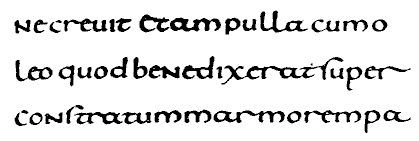 Necreuit et ampulla cum o
leo quod benedixerat super
constratum marmore mpa